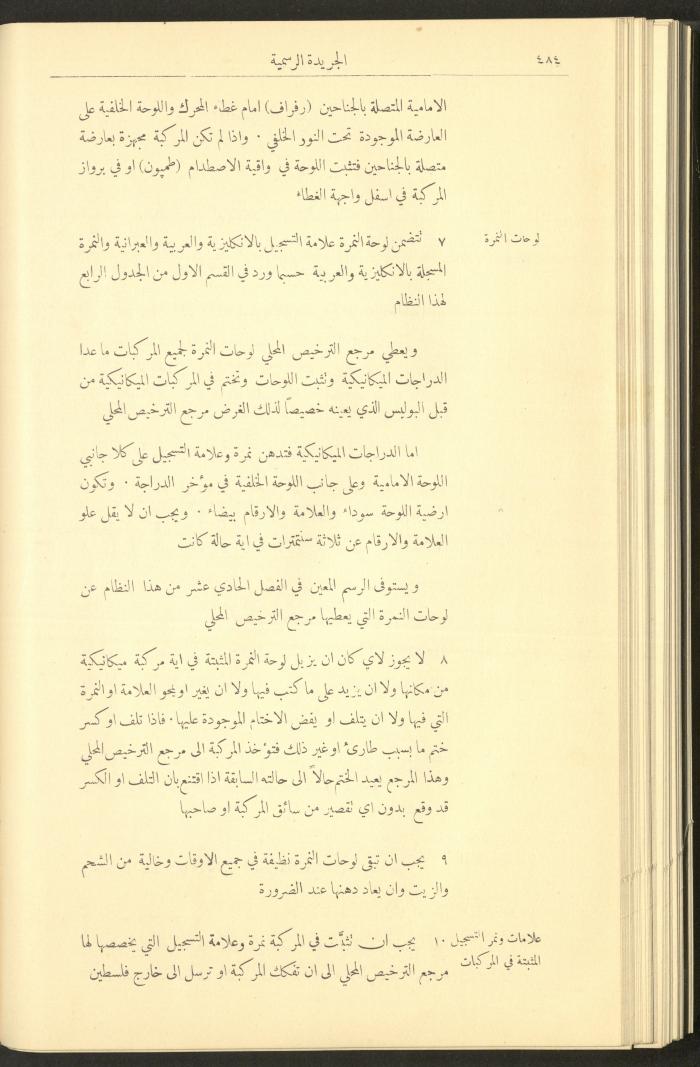 ٤٨٤
الجريدة الرسمية
الامامية المتصلة بالجناحين (رفراف) امام غطاء المحرك واللوحة الخلفية على
العارضة الموجودة تحت النور الخلفي ٠ واذا لم تكن المركبة مجهزة بعارضة
متصلة بالجناحين فتثبت اللوحة في واقية الاصطدام (طمبون) او في برواز
المركبة في اسفل واجهة الغطاء
لوحات النمرة
٧ تتضمن لوحة النمرة علامة التسجيل بالانكليزية والعربية والعبرانية والنمرة
المسجلة بالانكليزية والعربية حسبما ورد في القسم الاول من الجدول الرابع
لهذا النظام
ويعطي مرجع الترخيص المحلي لوحات النمرة لجميع المركبات ما عدا
الدراجات الميكانيكية وتثبت اللوحات وتختم في المركبات الميكانيكية من
قبل البوليس الذي يعينه خصيصاً لذلك الغرض مرجع الترخيص المحلي
اما الدراجات الميكانيكية فتدهن نمرة وعلامة التسجيل على كلا جانبي
اللوحة الامامية وعلى جانب اللوحة الخلفية في مؤخر الدراجة ٠ وتكون
ارضية اللوحة سوداء والعلامة والارقام بيضاء ٠ ويجب ان لا يقل علو
العلامة والارقام عن ثلاثة سنتمترات في اية حالة كانت
ويستوفى الرسم المعين في الفصل الحادي عشر من هذا النظام عن
لوحات النمرة التي يعطيها مرجع الترخيص المحلي
٨ لا يجوز لاي كان ان يزيل لوحة النمرة المثبتة في اية مركبة ميكانيكية
من مكانها ولا ان يزيد على ما كتب فيها ولا ان يغير او يمحو العلامة او النمرة
التي فيها ولا ان يتلف او يفض الاختام الموجودة عليها ٠ فاذا تلف او كسر
ختم ما بسبب طارئ او غير ذلك فتؤخذ المركبة الى مرجع الترخيص المحلي
وهذا المرجع يعيد الختم حالاً الى حالته السابقة اذا اقتنع بان التلف او الكسر
قد وقع بدون اي تقصير من سائق المركبة او صاحبها
٩ يجب ان تبقى لوحات النمرة نظيفة في جميع الاوقات وخالية من الشحم
والزيت وان يعاد دهنها عند الضرورة
علامات ونمر التسجيل
المثبتة في المركبات
١٠ يجب ان تثبَّت في المركبة نمرة وعلامة التسجيل التي يخصصها لها
مرجع الترخيص المحلي الى ان تفكك المركبة او ترسل الى خارج فلسطين